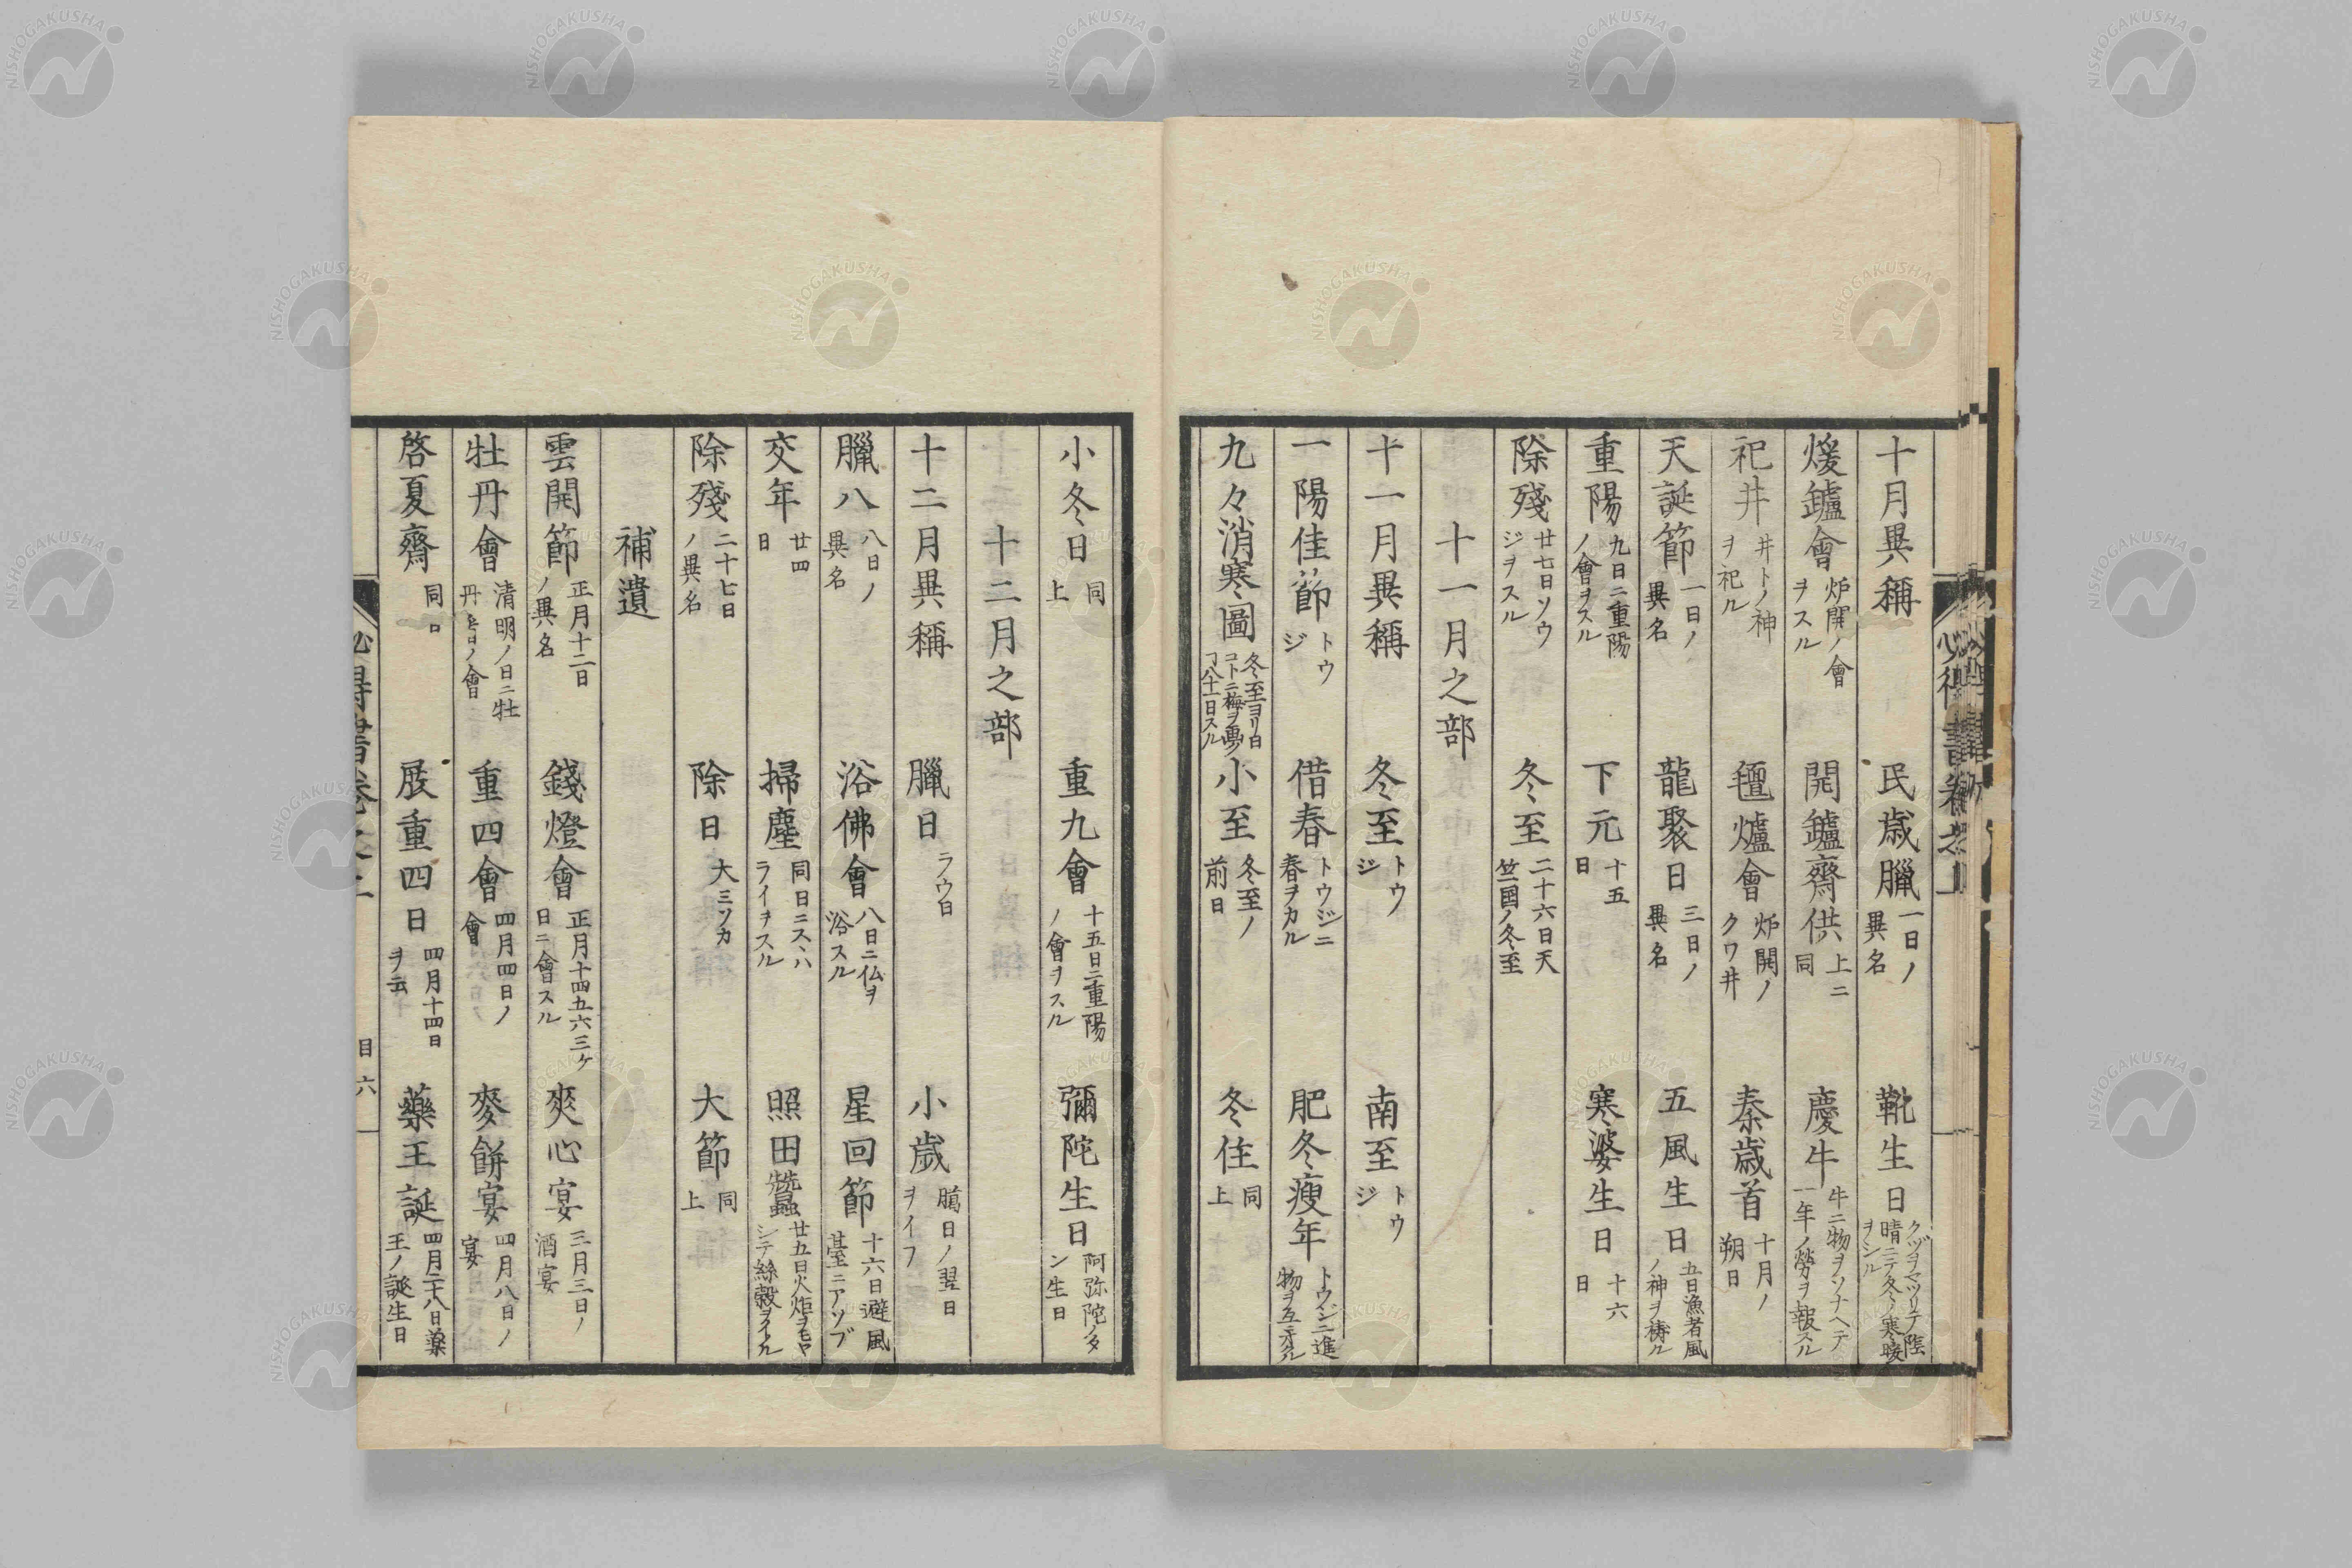 十月異稱 民歳臘 一日ノ異名 靴生日 クヅヲマツリテ陰晴ニテ冬ノ寒暖ヲシル
煖鑪會 炉開ノ會ヲスル 開鑪齋供 上ニ同 慶牛 牛ニ物ヲソナヘテ一年ノ勞ヲ報スル
祀井 井トノ神ヲ祀ル 氊爐會 炉開ノクワ井 秦歳首 十月ノ朔日
天誕節 一日ノ異名 龍聚日 三日ノ異名 五風生日 五日漁者風ノ神ヲ祷ル
重陽 九日ニ重陽ノ會ヲスル 下元 十五日 寒婆生日 十六日
除殘 廿七日ソウジヲスル 冬至 二十六日天竺国ノ冬至
十一月之部
十一月異稱 冬至 トウジ 南至 トウジ
一陽佳節 トウジ 借春 トウジニ春ヲカル 肥冬瘦年 トウジニ進物ヲ互ニ
九々消寒圖 冬至ヨリ日コトニ梅ヲ画ク八十一日スル 小至 冬至ノ前日 冬住 同上
小冬日 同上 重九會 十五日ニ重陽ノ會ヲスル 彌陀生日 阿弥陀ノタン生日
十二月之部
十二月異稱 臘日 ラウ日 小歲 臈日ノ翌日ヲイフ
臘八 八日ノ異名 浴佛會 八日ニ仏ヲ浴スル 星回節 十六日避風臺ニアソブ
交年 廿四日 掃塵 同日ニスヽハライヲスル 照田蠶 廿五日火炬ヲモヤシテ絲穀ヲイノル
除殘 二十七日ノ異名 除日 大三ソカ 大節 同上
補遺
雲開節 正月十二日ノ異名 錢燈會 正月十四五六三ケ日ニ會スル 爽心宴 三月三日ノ酒宴
牡丹會 清明ノ日ニ牡丹ノ會 重四會 四月四日ノ會 麥餅宴 四月八日ノ宴
啓夏齋 同日 展重四日 四月十四日ヲ云 藥王誕 四月二十八日藥王ノ誕生日
目六